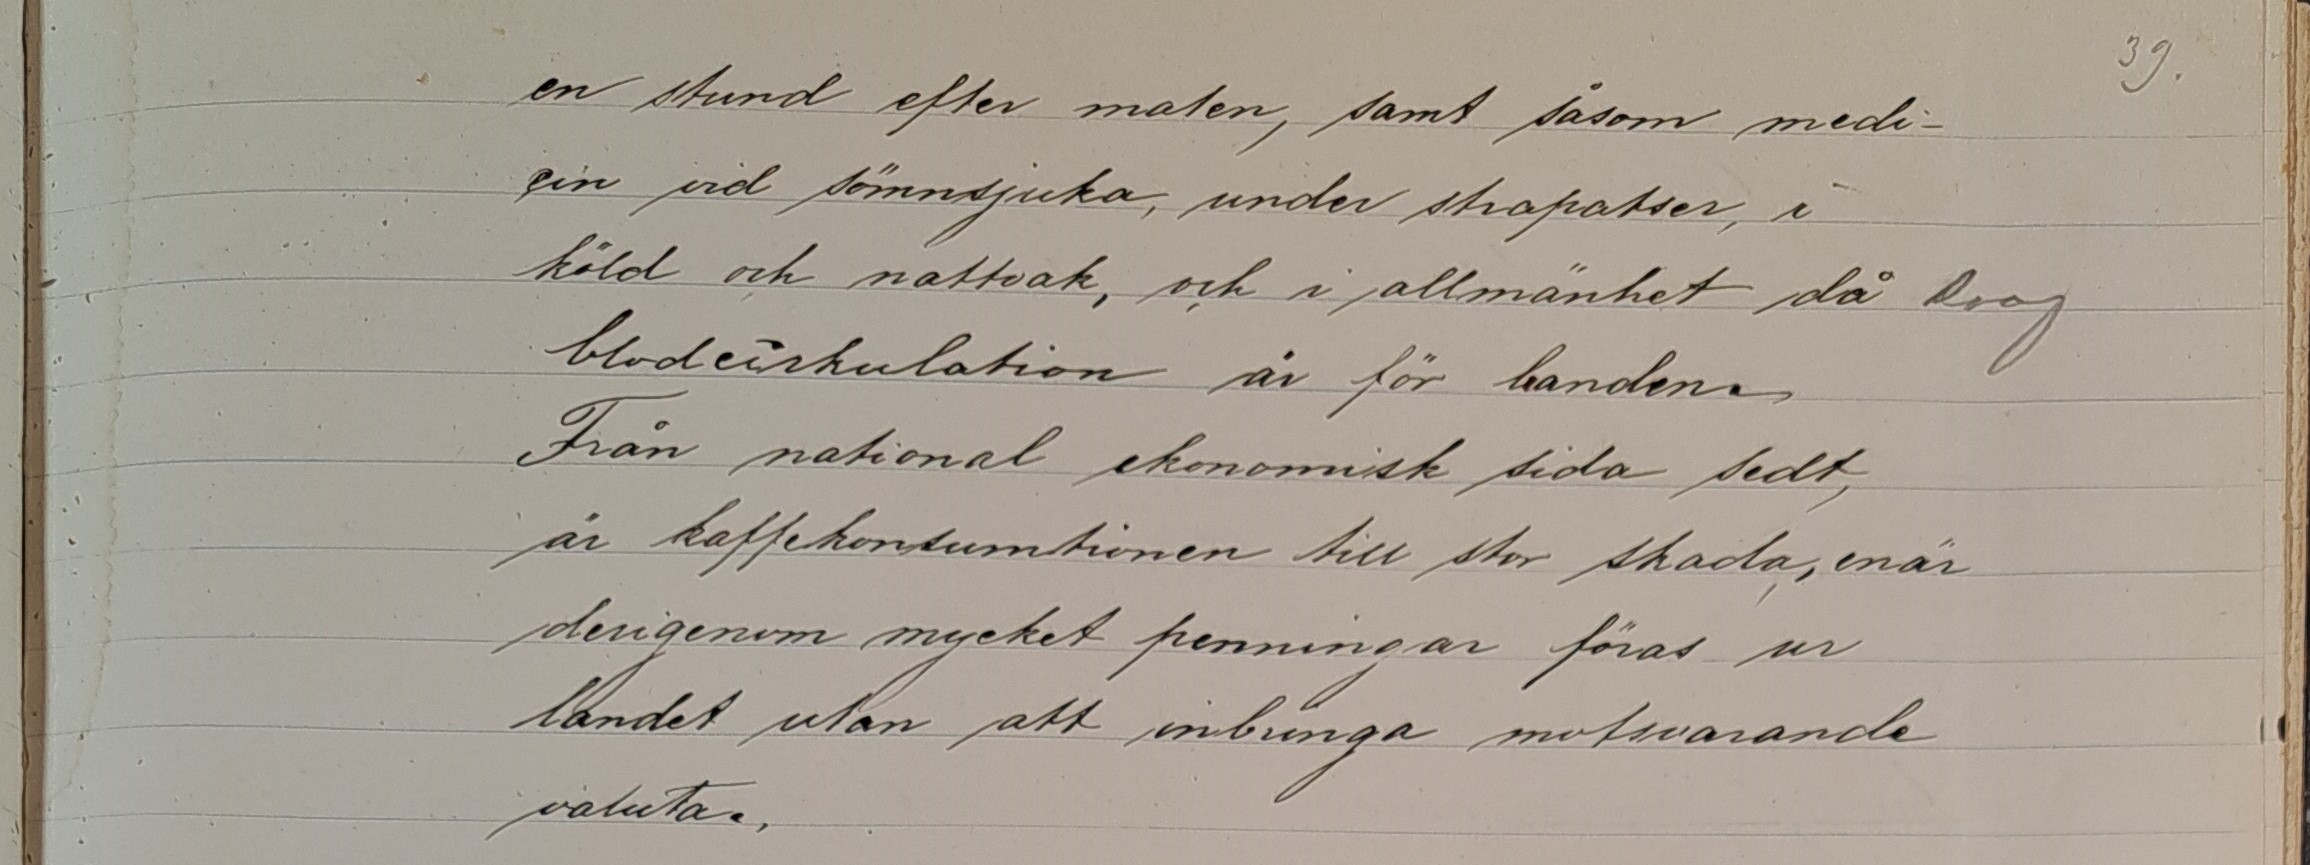 39.
en stund efter maten, samt såsom medi-
cin vid sömnsjuka, under strapatser, i
köld och nattvak, och i allmänhet då svag
blodcirkulation är för handen.
Från national ekonomisk sida sedt,
är kaffekonsumtionen till stor skada, enär
derigenom mycket penningar föras ur
landet utan att inbringa motsvarande
valuta.